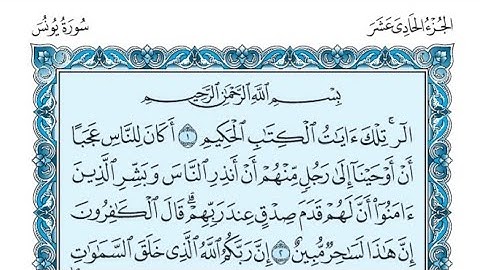 الجُزْءُ الحَادِى عَشَرَ
سُورَةُ يُونُسَ
بِسْمِ ٱللَّهِ ٱلرَّحْمَٰنِ ٱلرَّحِيمِ
الٓر ۚ تِلْكَ ءَايَٰتُ ٱلْكِتَٰبِ ٱلْحَكِيمِ ١ أَكَانَ لِلنَّاسِ عَجَبًا
أَنْ أَوْحَيْنَآ إِلَىٰ رَجُلٍ مِّنْهُمْ أَنْ أَنذِرِ ٱلنَّاسَ وَبَشِّرِ ٱلَّذِينَ
ءَامَنُوٓا۟ أَنَّ لَهُمْ قَدَمَ صِدْقٍ عِندَ رَبِّهِمْ ۗ قَالَ ٱلْكَٰفِرُونَ
إِنَّ هَٰذَا لَسَٰحِرٌ مُّبِينٌ ٢ إِنَّ رَبَّكُمُ ٱللَّهُ ٱلَّذِى خَلَقَ ٱلسَّمَٰوَٰتِ